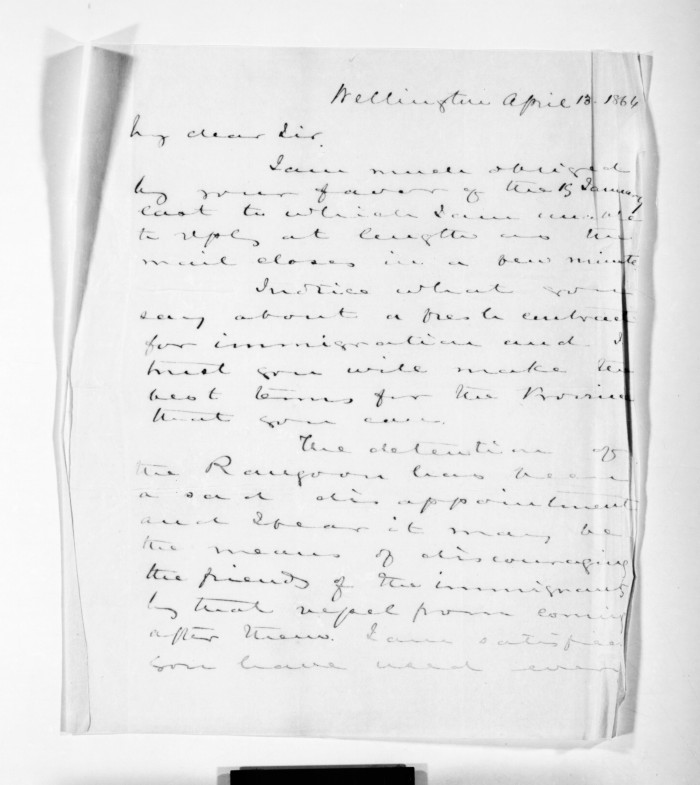 Wellington April 13. 1864
My dear Sir.
I am much obliged
by your favor of the 15 January
last to which I am unable
to reply at length as the
mail closes in a few minute
I notice what you
say about a fresh contract
for immigration and I
trust you will make the
best terms for the Province
that you can.
The detention of
the Rangoon has been
a sad disappointment
and I fear it may be
the means of discouraging
the friends of the immigrants
by that vessel from coming
after them. I am satisfied
you have used every